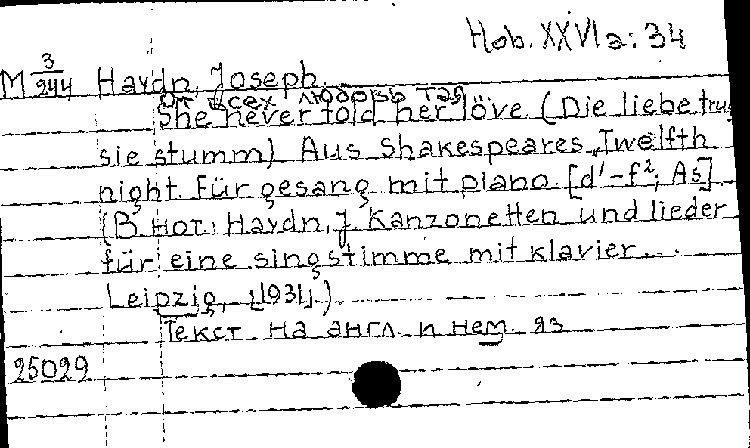 Hob. XXVIa: 34
M 3/244 Haydn, Joseph.
От всех любовь тая
She never told her löve. (Die liebe trug
sie stumm) Aus Shakespeares „Twelfth
night. Für gesang mit piano. [d'-f², As]
(В нот.: Haydn, J. Kanzonetten und lieder
für eine singstimme mit klavier...
Leipzig, [1931].)
Текст на англ. и нем. яз
25029